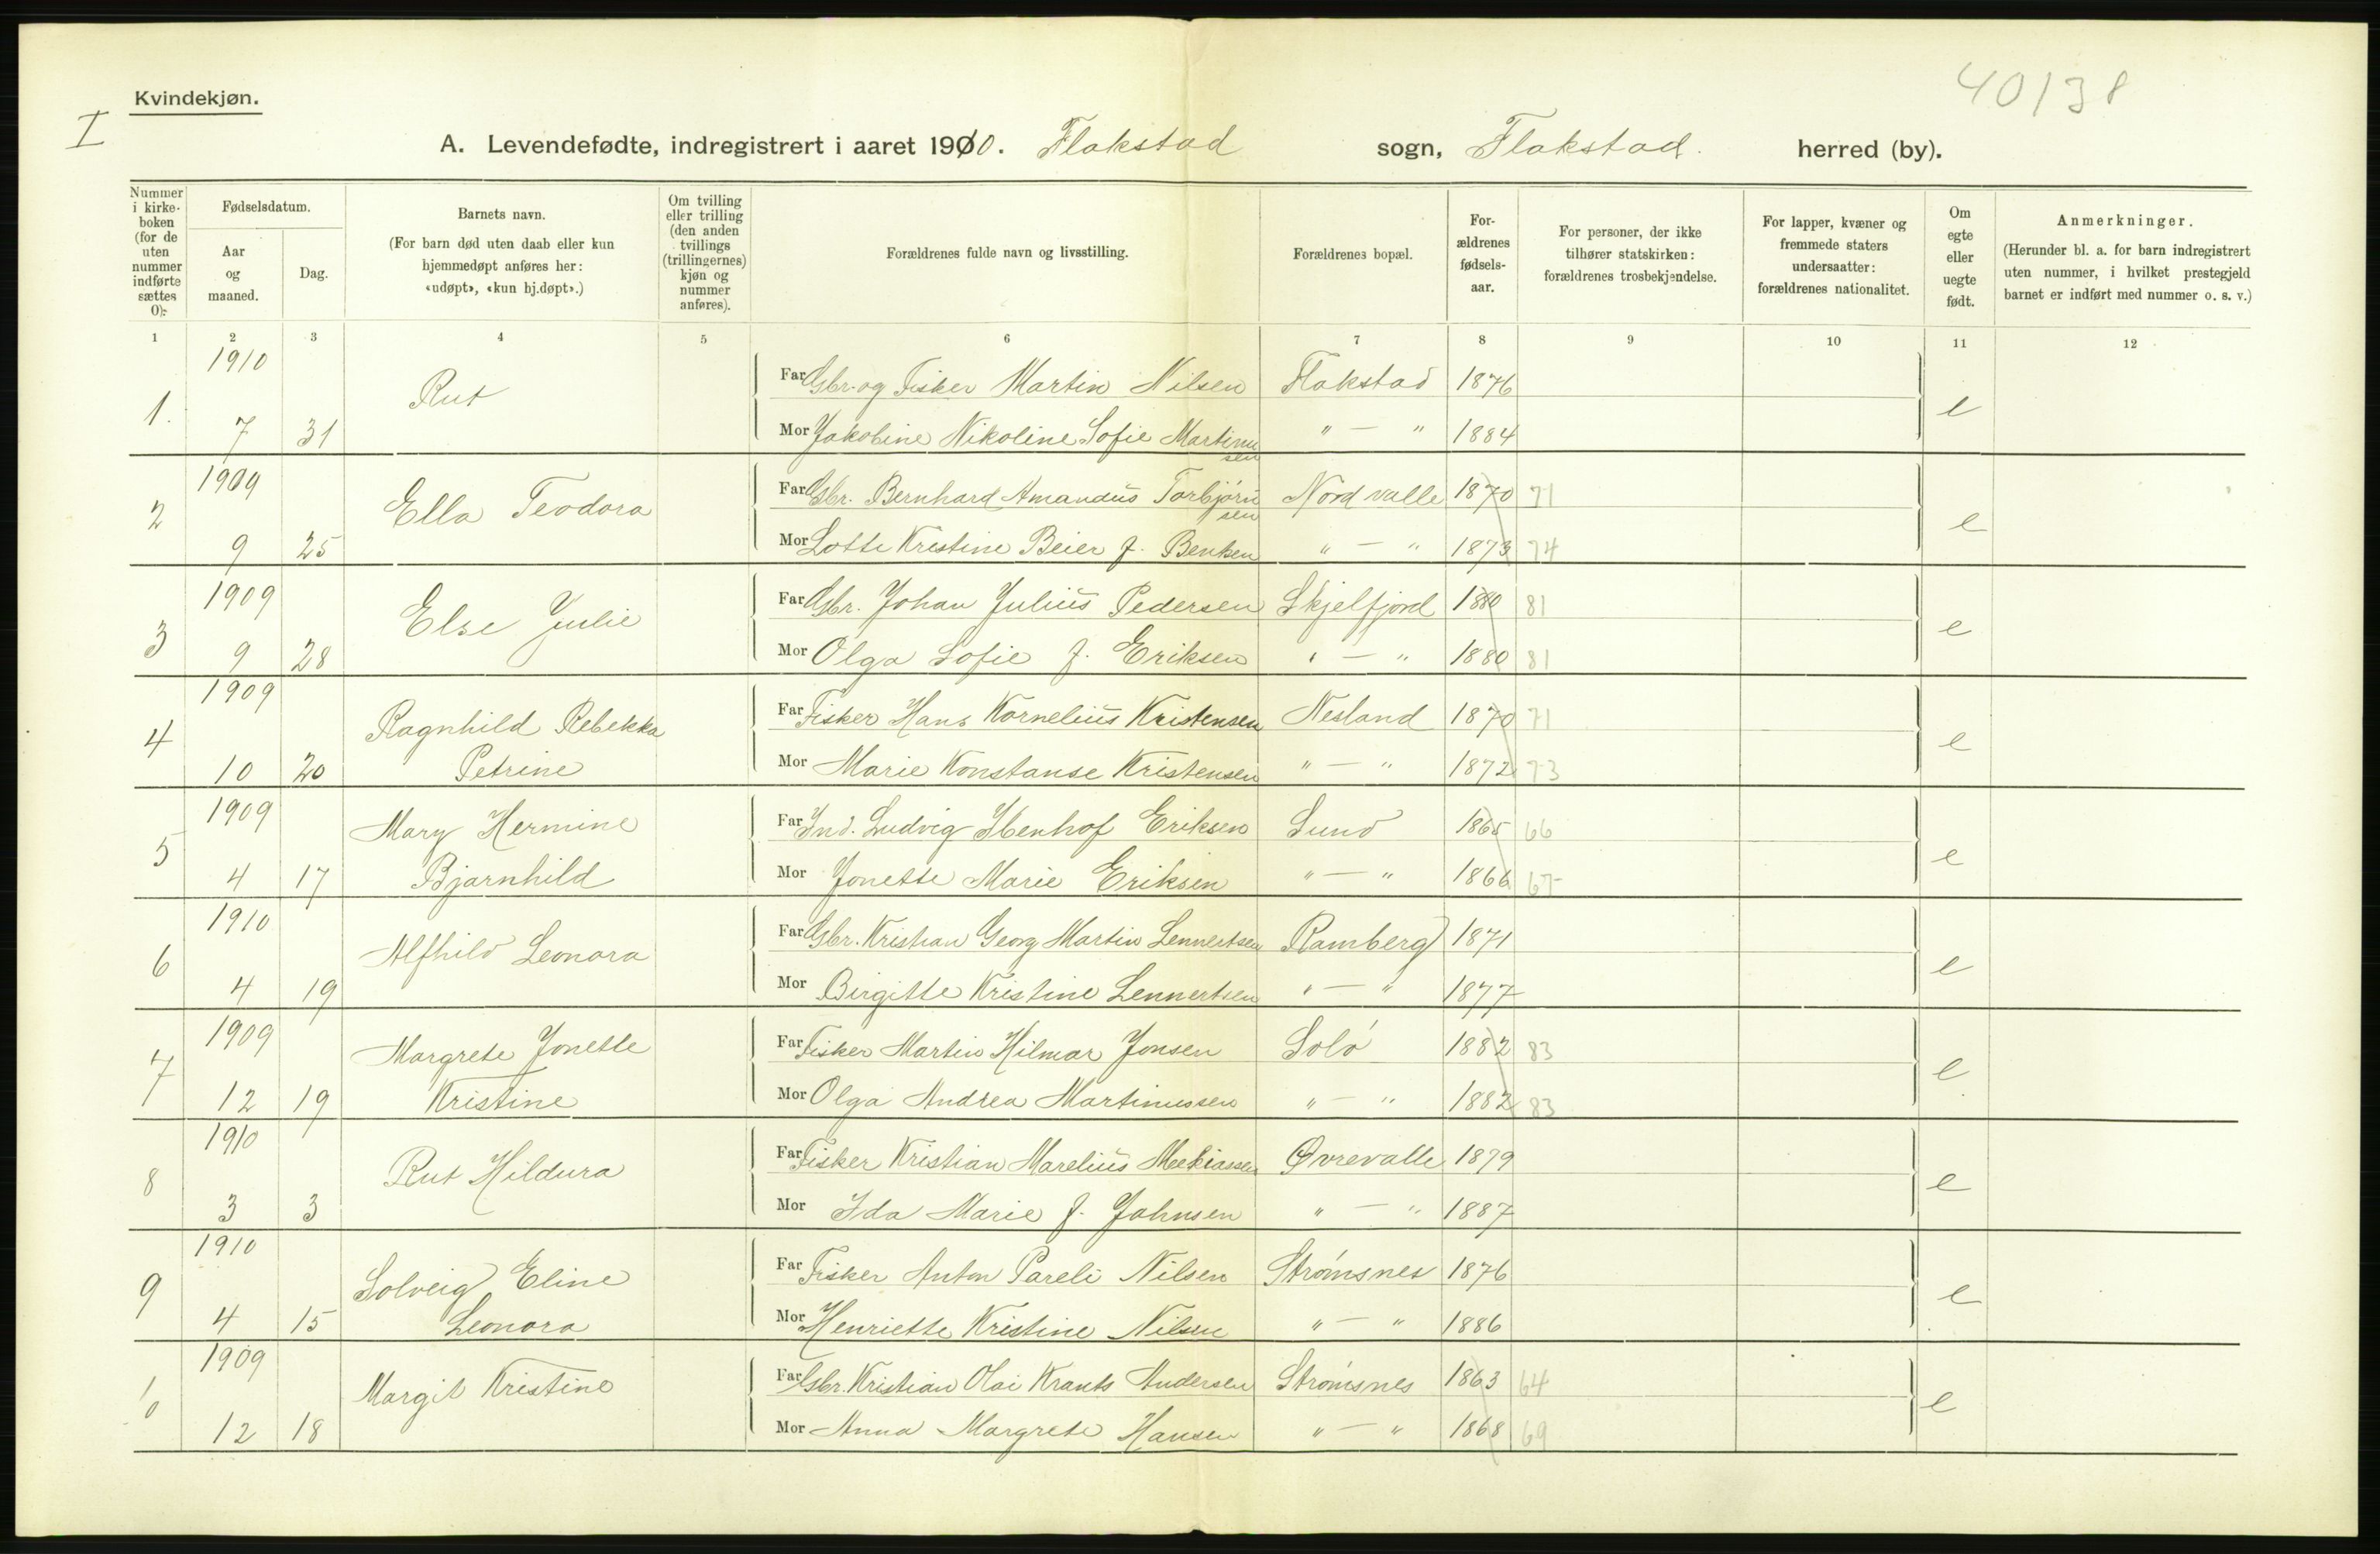 40138
Kvindekjøn.
I
A. Levendefødte, indregistrert i aaret 1910. Flakstad sogn, Flakstad. herred (by).
Nummer i kirke-boken (for de uten nummer indførte sættes 0):
Fødselsdatum.
Aar og maaned.
Dag.
Barnets navn.
(For barn død uten daab eller kun hjemmedøpt anføres her: «udøpt», «kun hj.døpt».)
Om tvilling eller trilling (den anden tvillings (trillingernes) kjøn og nummer anføres).
Forældrenes fulde navn og livsstilling.
Forældrenes bopæl.
For-ældrenes fødsels-aar.
For personer, der ikke tilhører statskirken: forældrenes trosbekjendelse.
For lapper, kvæner og fremmede staters undersaatter: forældrenes nationalitet.
Om egte eller uegte født.
Anmerkninger.
(Herunder bl. a. for barn indregistrert uten nummer, i hvilket prestegjeld barnet er indført med nummer o. s. v.)
1 2 3 4 5 6 7 8 9 10 11 12
1. 1910 7 31 Rut e
Far Gbr. og Fisker Martin Nilsen Flakstad 1876
Mor Jakobine Nikoline Sofie Martinussen " — " 1884
2 1909 9 25 Ella Teodora e
Far Gbr. Bernhard Amandus Torbjørnsen Nordvalle 1870 71
Mor Lotte Kristine Beier f. Bentsen " — " 1873 74
3 1909 9 28 Else Julie e
Far Gbr. Johan Julius Pedersen Skjelfjord 1880 81
Mor Olga Sofie f. Eriksen " — " 1880 81
4 1909 10 20 Ragnhild Rebekka Petrine e
Far Fisker Hans Kornelius Kristensen Nesland 1870 71
Mor Marie Konstanse Kristensen " — " 1872 73
5 1909 4 17 Mary Hermine Bjarnhild e
Far Ind. Ludvig Ibenhof Eriksen Sund 1865 66
Mor Jonette Marie Eriksen " — " 1866 67
6 1910 4 19 Alfhild Leonora e
Far Gbr. Kristian Georg Martin Lennertsen Ramberg 1871
Mor Birgitte Kristine Lennertsen " — " 1877
7 1909 12 19 Margrete Jonette Kristine e
Far Fisker Martin Hilmar Jonsen Solø 1882 83
Mor Olga Andrea Martinussen " — " 1882 83
8 1910 3 3 Rut Hildura e
Far Fisker Kristian Marelius Meekiassen Øvrevalle 1879
Mor Ida Marie f. Johnsen " — " 1887
9 1910 4 15 Solveig Eline Leonora e
Far Fisker Anton Pareli Nilsen Strømsnes 1876
Mor Henriette Kristine Nilsen " — " 1886
10 1909 12 18 Margit Kristine e
Far Gbr. Kristian Olai Krants Andersen Strømsnes 1863 64
Mor Anna Margrete Hansen " — " 1868 69